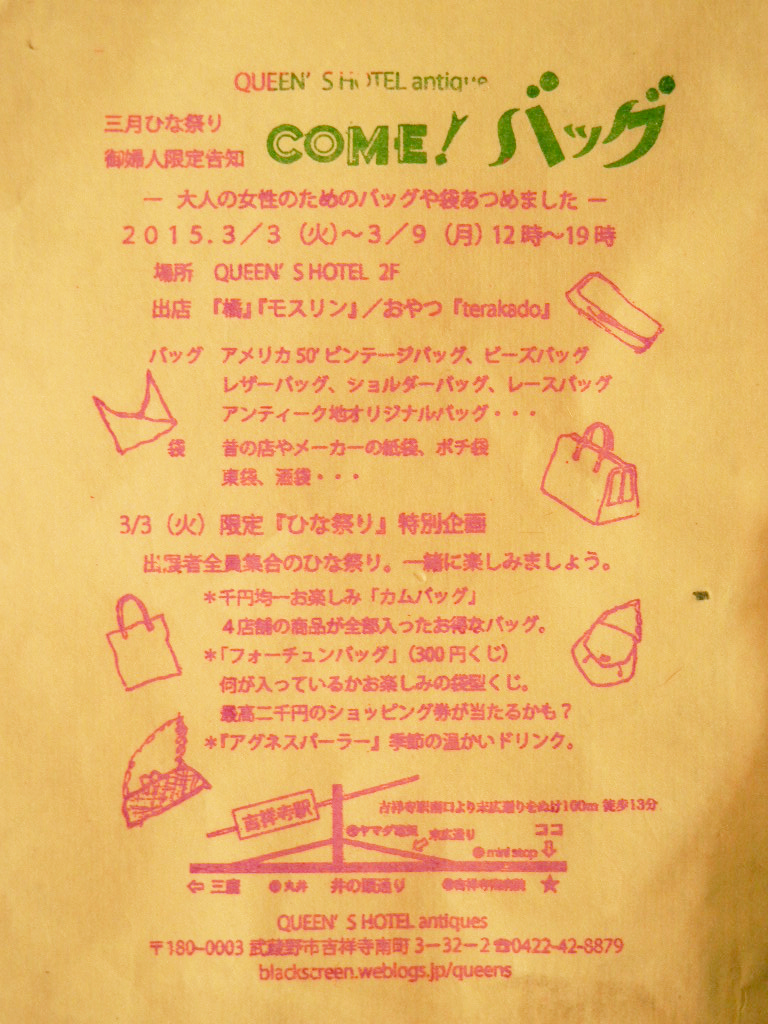 QUEEN'S HOTEL antique
三月ひな祭り
御婦人限定告知
COME! バッグ
― 大人の女性のためのバッグや袋あつめました ―
２０１５．３／３（火）～３／９（月）12時～19時
場所 QUEEN'S HOTEL 2F
出店 『橘』『モスリン』／おやつ『terakado』
バッグ アメリカ50'ビンテージバッグ、ビーズバッグ
レザーバッグ、ショルダーバッグ、レースバッグ
アンティーク地オリジナルバッグ・・・
袋 昔の店やメーカーの紙袋、ポチ袋
東袋、酒袋・・・
3/3（火）限定『ひな祭り』特別企画
出店者全員集合のひな祭り。一緒に楽しみましょう。
＊千円均一お楽しみ「カムバッグ」
４店舗の商品が全部入ったお得なバッグ。
＊「フォーチュンバッグ」（300円くじ）
何が入っているかお楽しみの袋型くじ。
最高二千円のショッピング券が当たるかも？
＊『アグネスパーラー』季節の温かいドリンク。
吉祥寺駅南口より末広通りをぬけ100m 徒歩13分
吉祥寺駅
ヤマダ電気 末広通り ココ
mini stop
⇦ 三鷹 丸井 井の頭通り 吉祥寺南病院 ☆
QUEEN'S HOTEL antiques
〒180-0003 武蔵野市吉祥寺南町３－３２－２☎0422-42-8879
blackscreen.weblogs.jp/queens